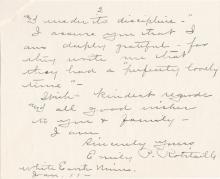 2
"I under its discipline -"
I assure you that I
am deeply grateful - for
they wrote me that
they had a "perfectly lovely
time" -
With kindest regards
and all good wishes
to you & family -
I am
Sincerely yours
Emily P.
White Earth Minn.
Jan. 11 -